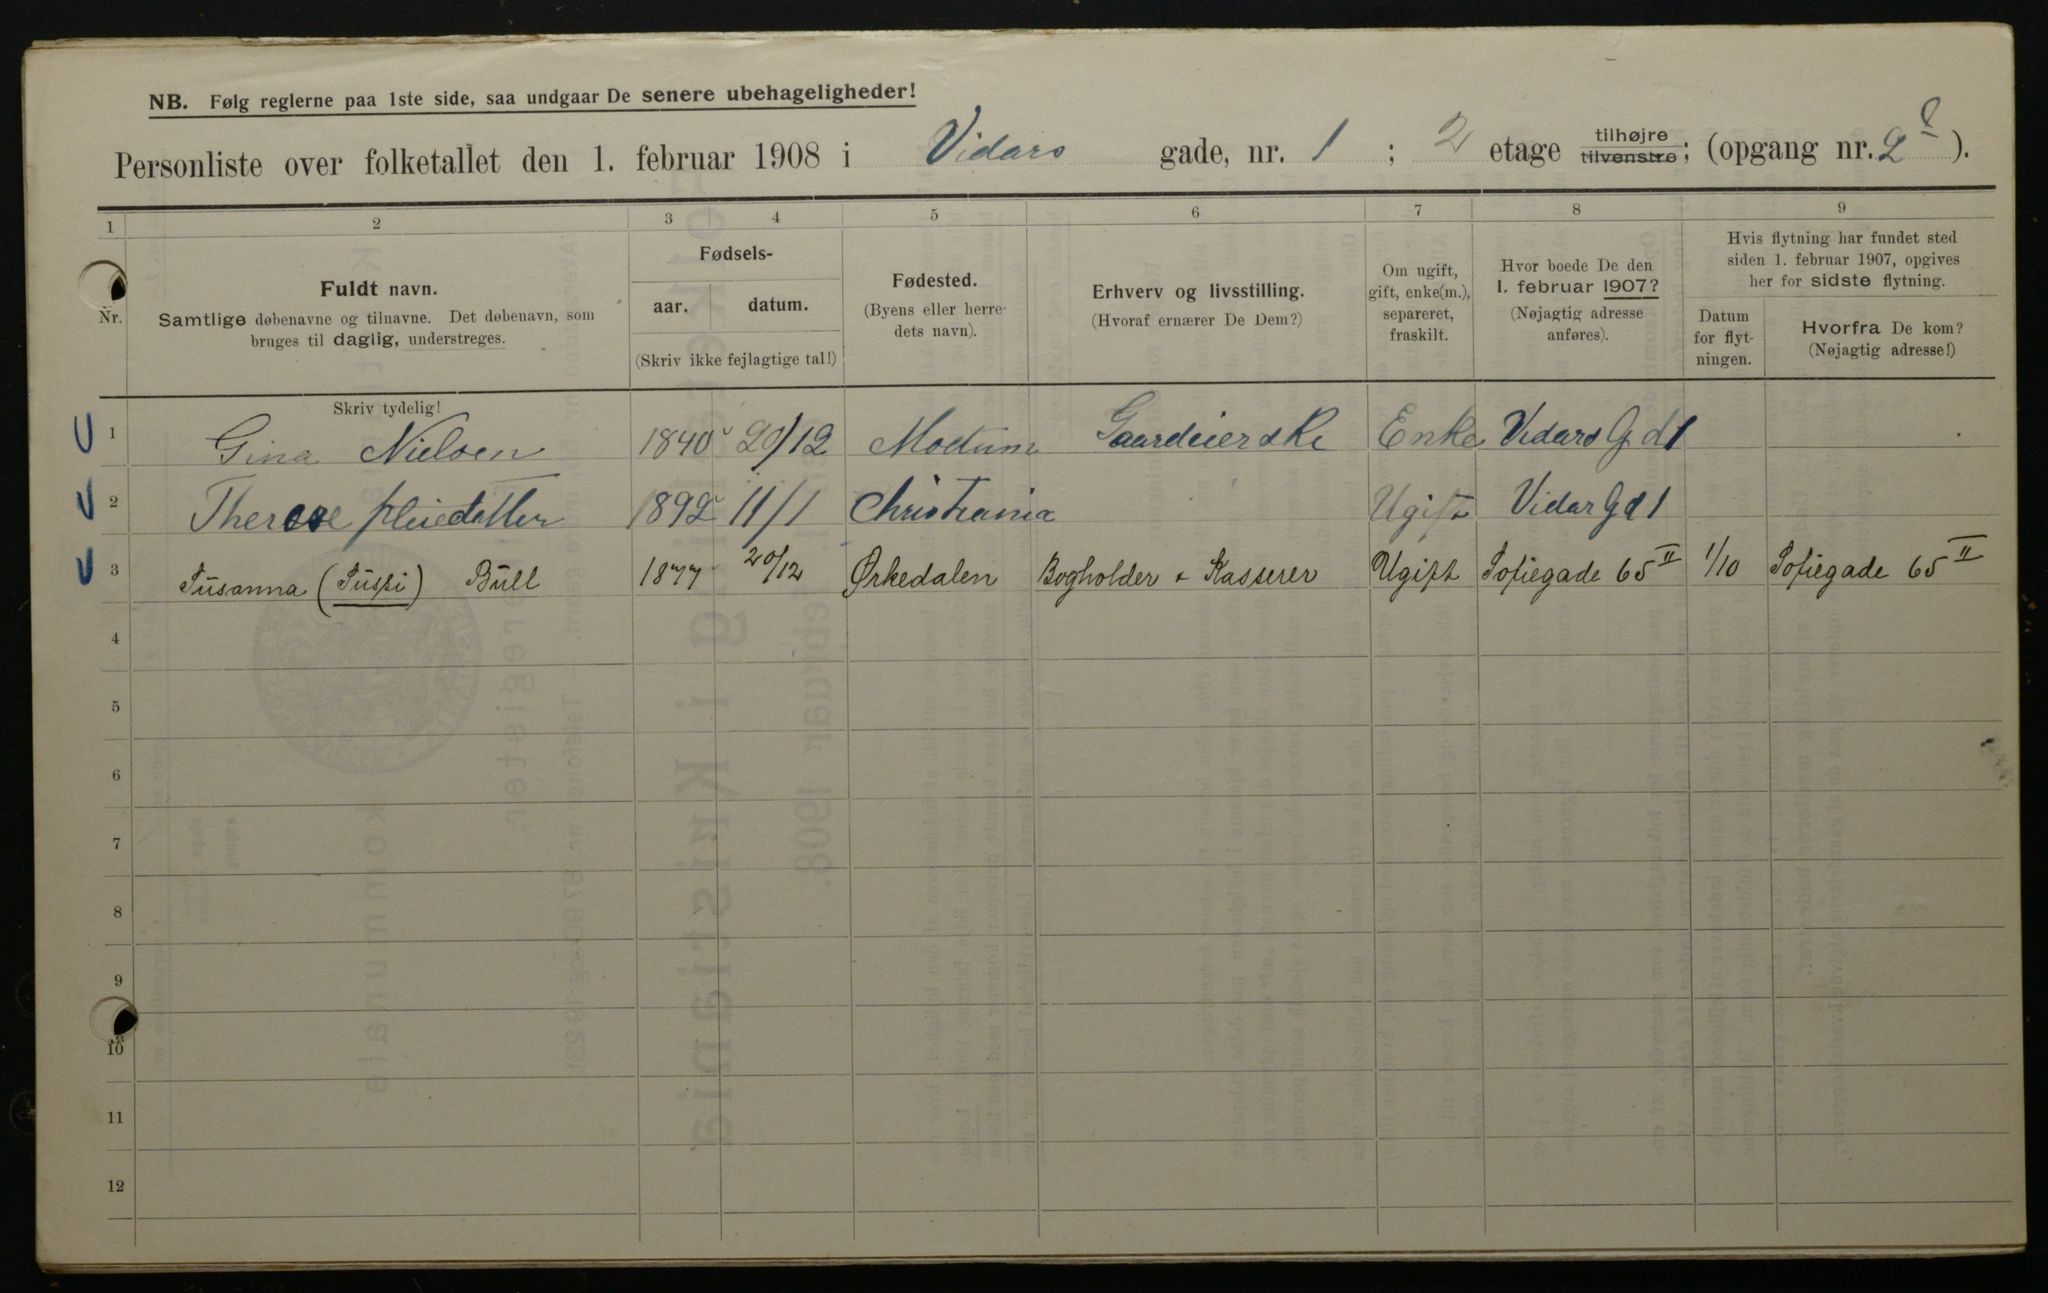 NB. Følg reglerne paa 1ste side, saa undgaar De senere ubehageligheder!
Personliste over folketallet den 1. februar 1908 i Vidars gade, nr. 1 ; 2 etage tilhøjre tilvenstre; (opgang nr. 2 ).
1 2 3 4 5 6 7 8 9
Nr.
Fuldt navn.
Samtlige døbenavne og tilnavne. Det døbenavn, som
bruges til daglig, understreges.
Skriv tydelig!
Fødsels-
aar. datum.
(Skriv ikke fejlagtige tal!)
Fødested.
(Byens eller herre-
dets navn).
Erhverv og livsstilling.
(Hvoraf ernærer De Dem?)
Om ugift,
gift, enke(m.),
separeret,
fraskilt.
Hvor boede De den
1. februar 1907?
(Nøjagtig adresse
anføres).
Hvis flytning har fundet sted
siden 1. februar 1907, opgives
her for sidste flytning.
Datum
for flyt-
ningen.
Hvorfra De kom?
(Nøjagtig adresse!)
1 Gina Nielsen 1840 20/12 Modum Gaardeierske Enke Vidars Gd 1
2 Therese Pleiedatter 1892 11/1 Christiania Ugift Vidar Gd 1
3 Susanna (Sussi) Bull 1877 20/12 Ørkedalen Bogholder + Kasserer Ugift Sofiegade 65 II 1/10 Sofiegade 65 II
4
5
6
7
8
9
10
11
12